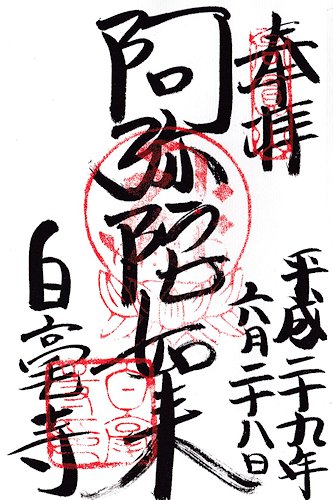 奉拝
平成二十九年
六月二十八日
阿弥陀如来
白毫寺